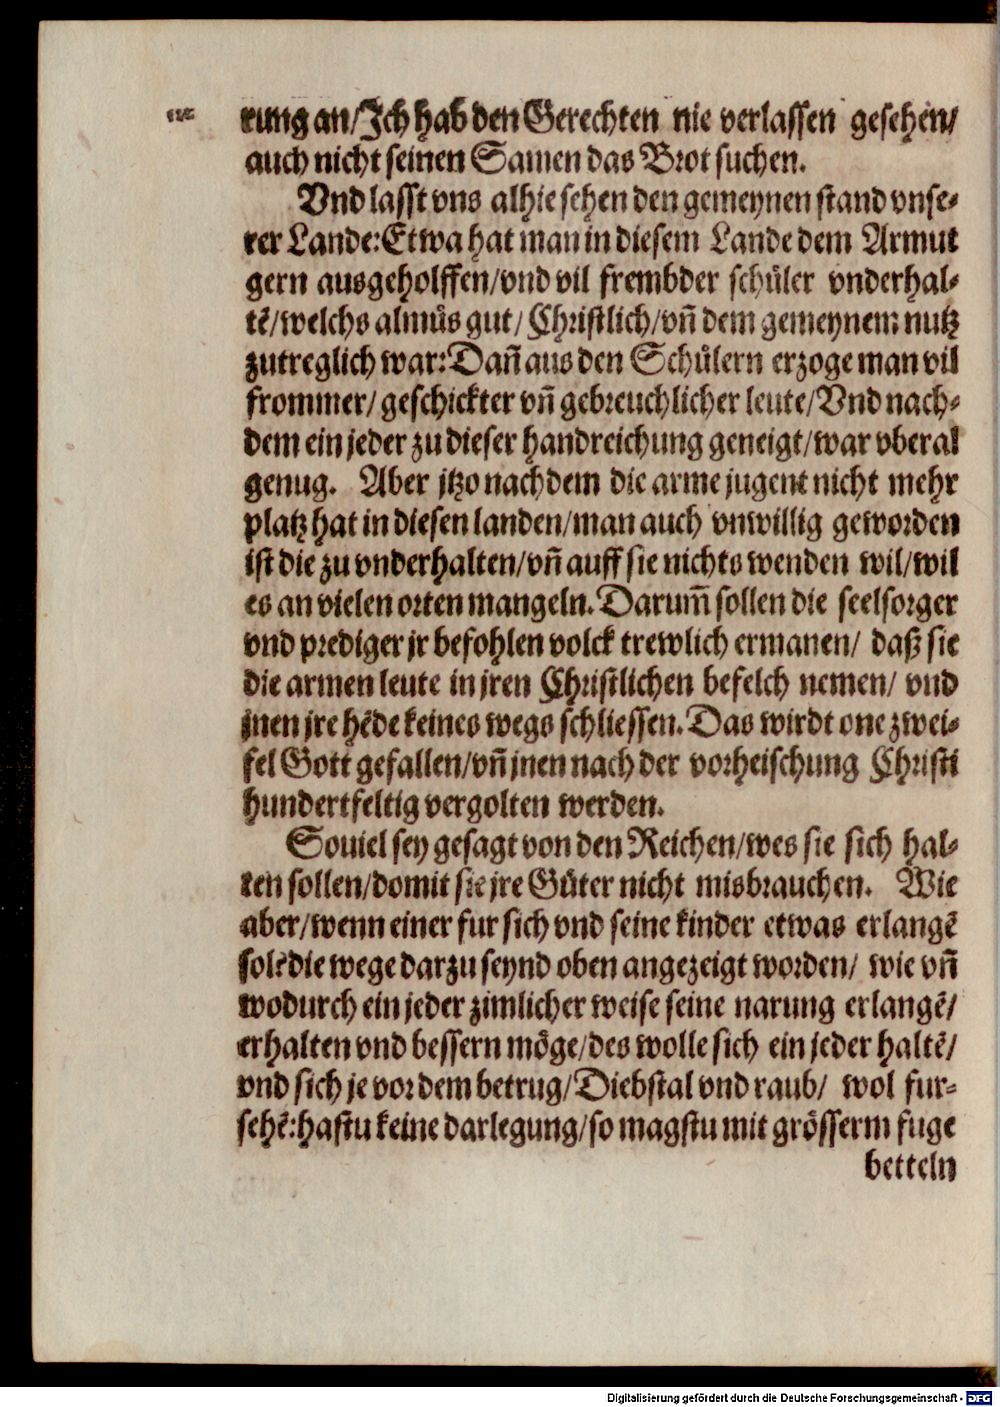 rung an/Ich hab den Gerechten nie verlassen gesehen/
auch nicht seinen Samen das Brot suchen.
Vnd lasst vns alhie sehen den gemeynen stand vnse-
rer Lande: Etwa hat man in diesem Lande dem Armut
gern ausgeholffen/vnd vil frembder schůler vnderhal-
tẽ/welchs almůs gut/ Christlich/vñ dem gemeynem nutz
zutreglich war: Dañ aus den Schůlern erzoge man vil
frommer/ geschickter vñ gebreuchlicher leute/Vnd nach-
dem ein jeder zu dieser handreichung geneigt/war vberal
genug. Aber jtzo nachdem die arme jugent nicht mehr
platz hat in diesen landen/man auch vnwillig geworden
ist die zu vnderhalten/vñ auff sie nichts wenden wil/wil
es an vielen orten mangeln. Darum̃ sollen die seelsorger
vnd prediger jr befohlen volck trewlich ermanen/ daß sie
die armen leute in jren Christlichen befelch nemen/ vnd
jnen jre hẽde keines wegs schliessen. Das wirdt one zwei-
fel Gott gefallen/vñ jnen nach der vorheischung Christi
hundertfeltig vergolten werden.
Souiel sey gesagt von den Reichen/wes sie sich hal-
ten sollen/domit sie jre Gůter nicht misbrauchen. Wie
aber/wenn einer fur sich vnd seine kinder etwas erlangẽ
solẽ die wege darzu seynd oben angezeigt worden/ wie vñ
wodurch ein jeder zimlicher weise seine narung erlangẽ/
erhalten vnd bessern mőge/des wolle sich ein jeder haltẽ/
vnd sich je vor dem betrug/Diebstal vnd raub/ wol fur-
sehẽ: hastu keine darlegung/so magstu mit grősserm fuge
betteln
Digitalisierung gefördert durch die Deutsche Forschungsgemeinschaft - DFG